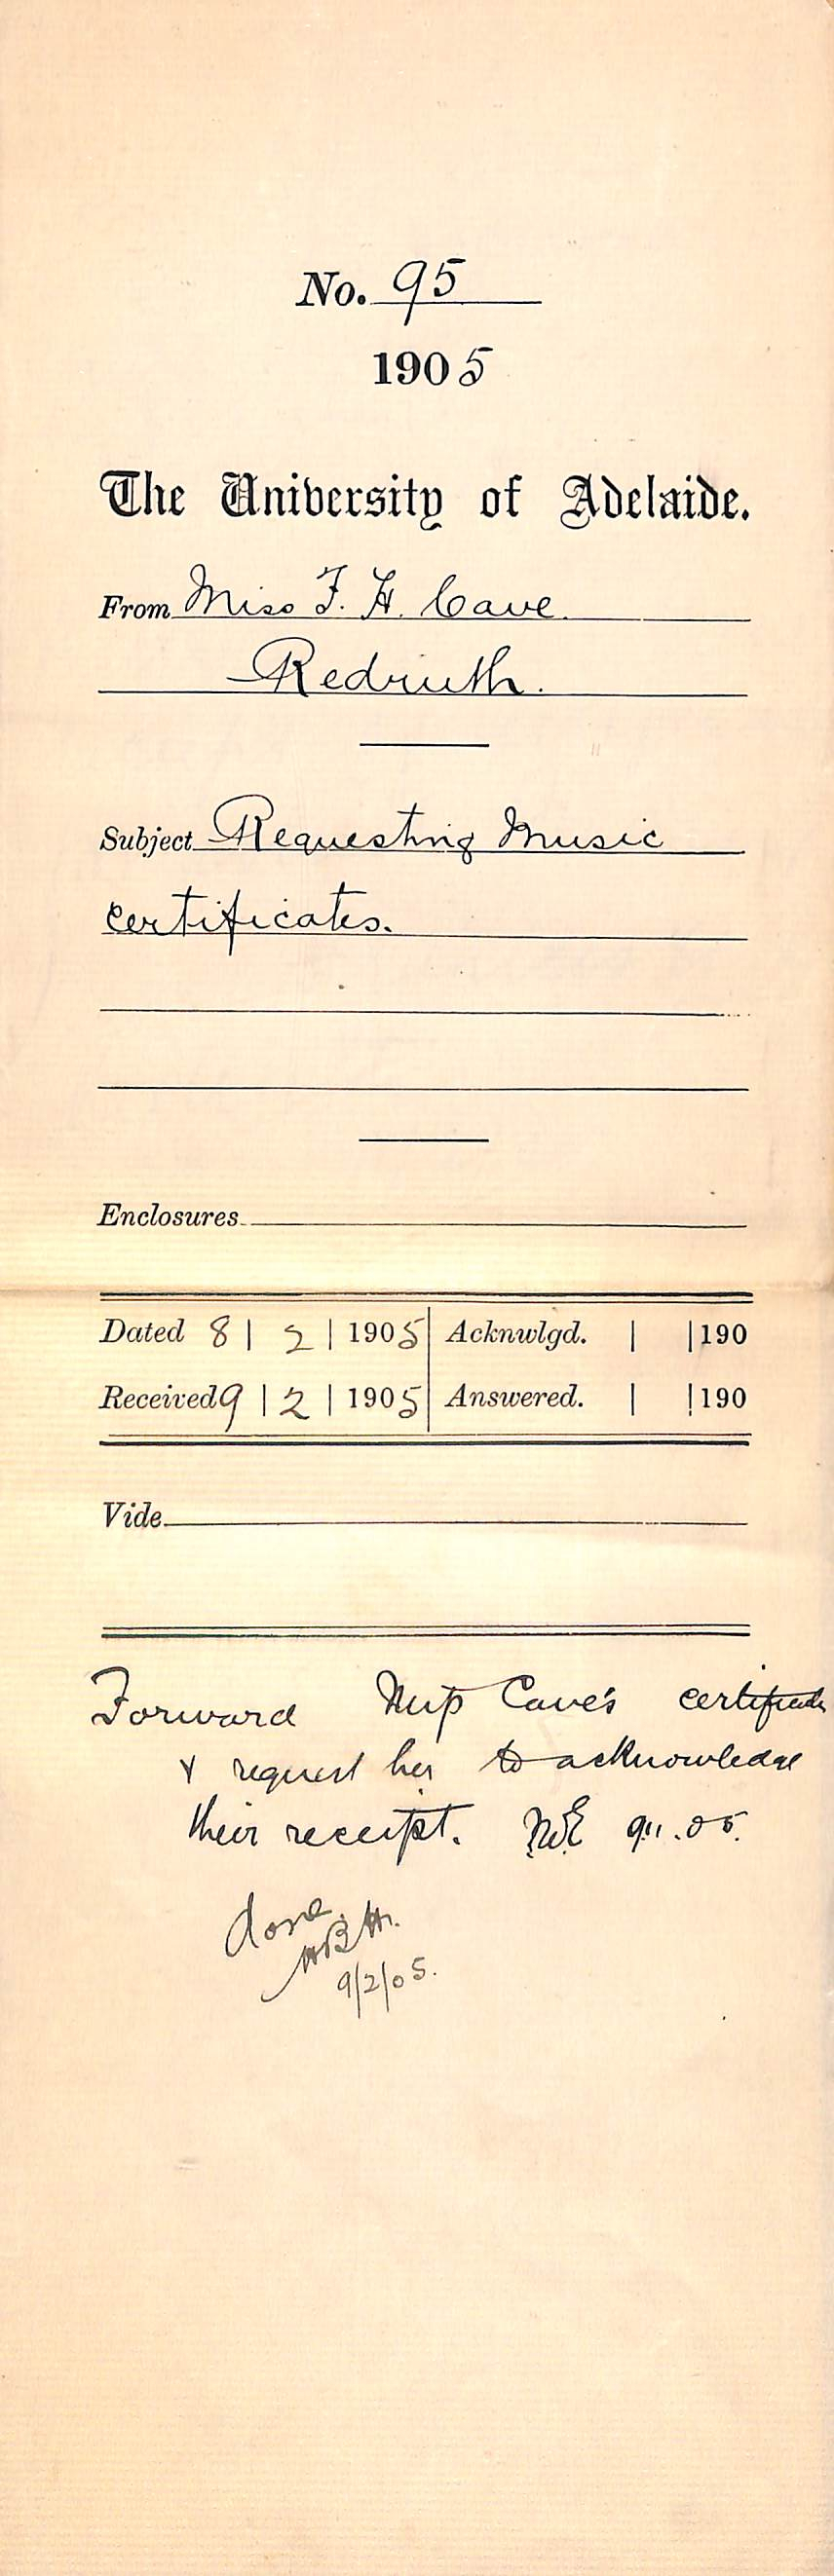 No. 95
1905
The University of Adelaide.
From Miss F. H. Cave
Redruth.
Subject Requesting Music
certificates.
Enclosures
Dated 8 | 2 | 1905 | Acknwlgd. | | 190
Received 9 | 2 | 1905 | Answered. | | 190
Vide
Forward Miss Cave's certificates
& request her to acknowledge
their receipt. 9.11.05.
done
9/2/05.